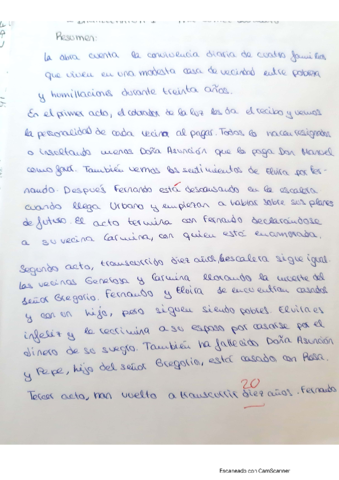 Resumen:
La obra cuenta la convivencia diaria de cuatro familias
que viven en una modesta casa de vecindad entre pobreza
y humillaciones durante treinta años.
En el primer acto, el cobrador de la luz les da el recibo y vemos
la personalidad de cada vecino al pagar. Todos lo hacen resignados
o insultando menos Doña Asunción que la paga Don Manuel
como favor. También vemos los sentimientos de Elvira por Fer-
nando. Después Fernando está descansando en la escalera
cuando llega Urbano y empiezan a hablar sobre sus planes
de futuro. El acto termina con Fernando declarándose
a su vecina Carmina, con quien está enamorada.
Segundo acto, transcurrido diez años, la escalera sigue igual
las vecinas Generosa y Carmina llorando la muerte del
señor Gregorio. Fernando y Elvira se encuentran casados
y con un hijo, pero siguen siendo pobres. Elvira es
infeliz y le recrimina a su esposo por casarse por el
dinero de su suegro. También ha fallecido Doña Asunción
y Pepe, hijo del señor Gregorio, está casado con Rosa.
20
Tercer acto, han vuelto a transcurrir diez años. Fernando
Escaneado con CamScanner